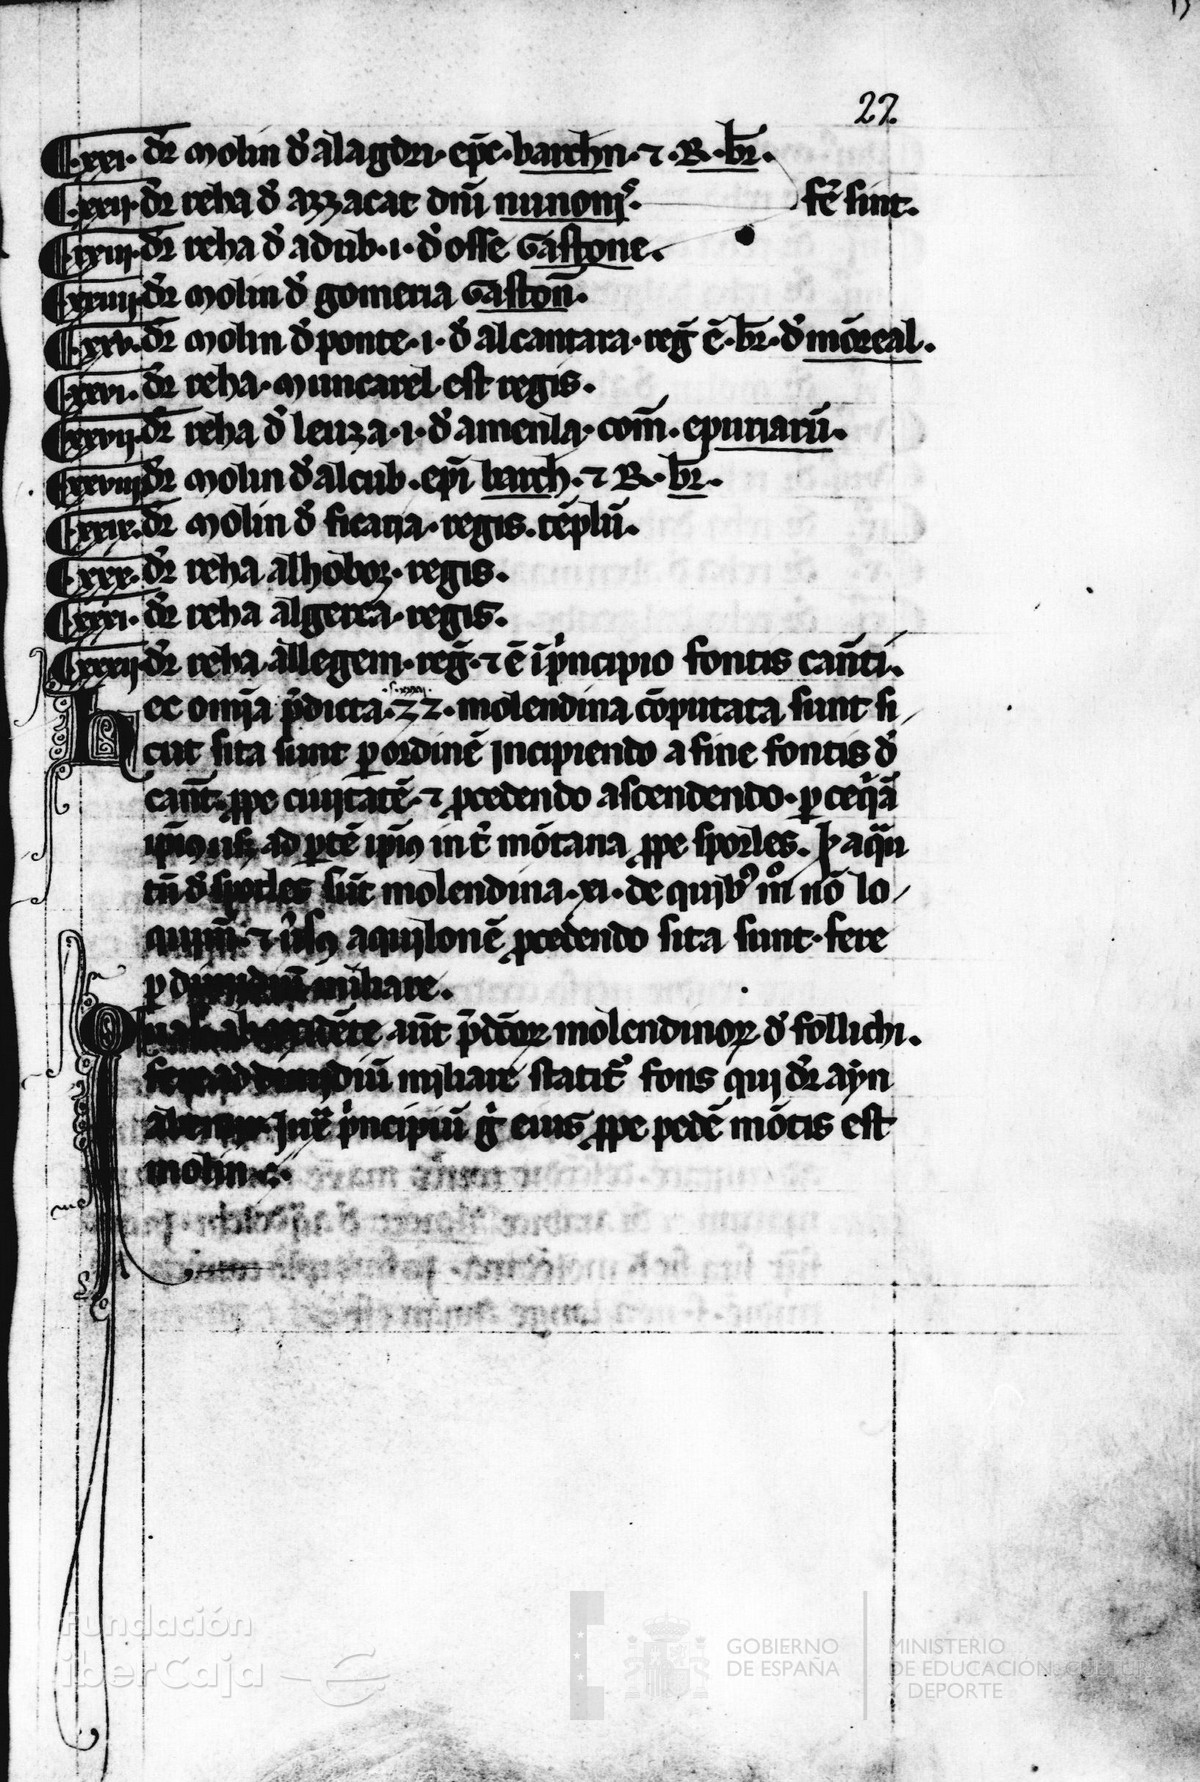 27.
.xxi. dr̄ molin d̄ alagdri. ep̄c. barchn̄. ⁊ .R. br̄.
.xxii. dr̄ reha d̄ azzacac dn̄i nunonis.
fr̄ sunt.
xxiii. dr̄ reha d̄ adub. .i. d̄ osse Gastone.
xxiiii. dr̄ molin d̄ gomeria Gaston̄.
.xxv. dr̄ molin d̄ ponte .i. d̄ alcantara. reḡ ē. br̄. d̄ mōreal.
xxvi. dr̄ reha. muncarel est regis.
xxvii. dr̄ reha d̄ leuza .i. d̄ amenla. com̄. epuriarū.
xxviii. dr̄ molin d̄ alcub. ep̄i barch̄. ⁊ R. br̄.
xxix. dr̄ molin d̄ ficaria. regis. tēplū.
.xxx. dr̄ reha alhoboz. regis.
xxxi. dr̄ reha algerea. regis.
xxxii. dr̄ reha allegem. reḡ. ⁊ ē īp̄ncipio fontis can̄ti.
.s. xxxii.
Hec om̄ia p̄dicta .32. molendina cōputata sunt si
cut sita sunt p ordinē Incipiendo a fine fontis d̄
can̄t. ꝓpe ciuitatē. ⁊ ꝓcedendo ascendendo. p ceq̄ā
ip̄ius usꝫ ad p̄tē ip̄ius int̄ mōtana ꝓpe sporles.
tū d̄ sporles sūt molendina .xi. de quibꝰ mō nō lo
quim̄. ⁊ ūsus aquilonē ꝓcedendo sita sunt. fere
p dimidiū miliare.
aūt p̄dc̄oꝝ molendinoꝝ d̄ follichi.
miliare statiꝫ fons qui dr̄ ayn
p̄ncipiū g̊ eius ꝓpe pedē mōtis est
molin.
Fundación
iberCaja
GOBIERNO
DE ESPAÑA
MINISTERIO
DE EDUCACIÓN, CULTURA
Y DEPORTE